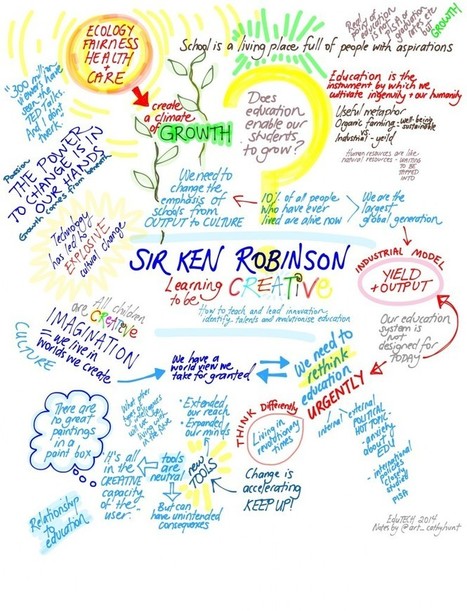 ECOLOGY
FAIRNESS
HEALTH
+
CARE
School is a living place full of people with aspirations
GROWTH
"300 million
viewers have
seen the
TED Talks.
And I don't
twerk."
create
a climate
of GROWTH
Does
education
enable our
students
to grow?
Education is the
instrument by which we
cultivate ingenuity + our humanity
Useful metaphor
Organic farming - well-being
- sustainable
Industrial - yield
Human resources are like
natural resources - WAITING
TO BE
TAPPED INTO
Passion
THE POWER
TO CHANGE IS IN
OUR HANDS
Growth comes from beneath
We need to
change the
emphasis of
schools from
OUTPUT to CULTURE
10% of all people
who have ever
lived are alive now
We are the
largest
global generation
Technology
has led to
EXPLOSIVE
cultural change
SIR KEN ROBINSON
Learning
to be CREATIVE
How to teach and lead innovation,
identify talents and revolutionise education
INDUSTRIAL MODEL
YIELD
+ OUTPUT
Our education
system is
not
designed for
TODAY
All children
are CREATIVE
IMAGINATION
= we live in
worlds we create
CULTURE
We have a
world view we
take for granted
We need to
rethink
education
URGENTLY
There are
no great
paintings
in a
paint box
Extended
our reach
Expanded
our minds
new
TOOLS
tools
are
neutral
It's all
in the
CREATIVE
capacity
of the
user.
But can
have unintended
consequences
THINK Differently
Living in
revolutionary
times
Change is
accelerating
KEEP UP!
internal
external
POLITICAL
HOT TOPIC
- anxiety
about
EDU
- international
indices
closely
studied
PISA
Relationship
to
education
EduTECH 2014
Notes by @art_cathyhunt